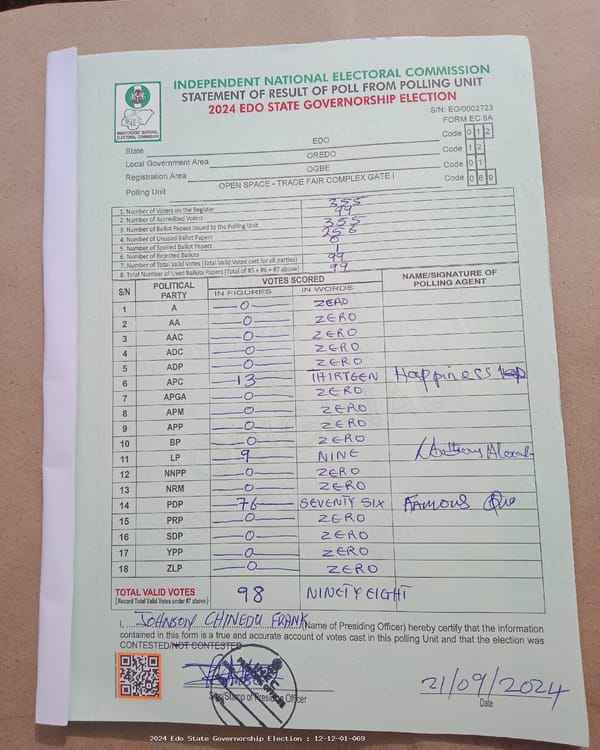 INDEPENDENT NATIONAL ELECTORAL COMMISSION
STATEMENT OF RESULT OF POLL FROM POLLING UNIT
2024 EDO STATE GOVERNORSHIP ELECTION
INDEPENDENT NATIONAL ELECTORAL COMMISSION
S/N: EG/0002723
FORM EC 8A
State EDO Code 0 1 2
Local Government Area OREDO Code 1 2
Registration Area OGBE Code 0 1
Polling Unit OPEN SPACE - TRADE FAIR COMPLEX GATE I Code 0 6 9
1. Number of Voters on the Register 355
2. Number of Accredited Voters 99
3. Number of Ballot Papers Issued to the Polling Unit 355
4. Number of Unused Ballot Papers 256
5. Number of Spoiled Ballot Papers 0
6. Number of Rejected Ballots 1
7. Number of Total Valid Votes (Total Valid Votes cast for all parties) 99
8. Total Number of Used Ballots Papers (Total of #5 + #6 + #7 above) 99
S/N POLITICAL PARTY VOTES SCORED NAME/SIGNATURE OF POLLING AGENT
IN FIGURES IN WORDS
1 A 0 ZERO
2 AA 0 ZERO
3 AAC 0 ZERO
4 ADC 0 ZERO
5 ADP 0 ZERO
6 APC 13 THIRTEEN Happiness
7 APGA 0 ZERO
8 APM 0 ZERO
9 APP 0 ZERO
10 BP 0 ZERO
11 LP 9 NINE
12 NNPP 0 ZERO
13 NRM 0 ZERO
14 PDP 76 SEVENTY SIX FAMOUS
15 PRP 0 ZERO
16 SDP 0 ZERO
17 YPP 0 ZERO
18 ZLP 0 ZERO
TOTAL VALID VOTES 98 NINETY EIGHT
(Record Total Valid Votes under #7 above)
I, JOHNSON CHINEDU FRANK (Name of Presiding Officer) hereby certify that the information
contained in this form is a true and accurate account of votes cast in this polling Unit and that the election was
CONTESTED/NOT CONTESTED
Sign/Stamp of Presiding Officer
21/09/2024
Date
2024 Edo State Governorship Election : 12-12-01-069